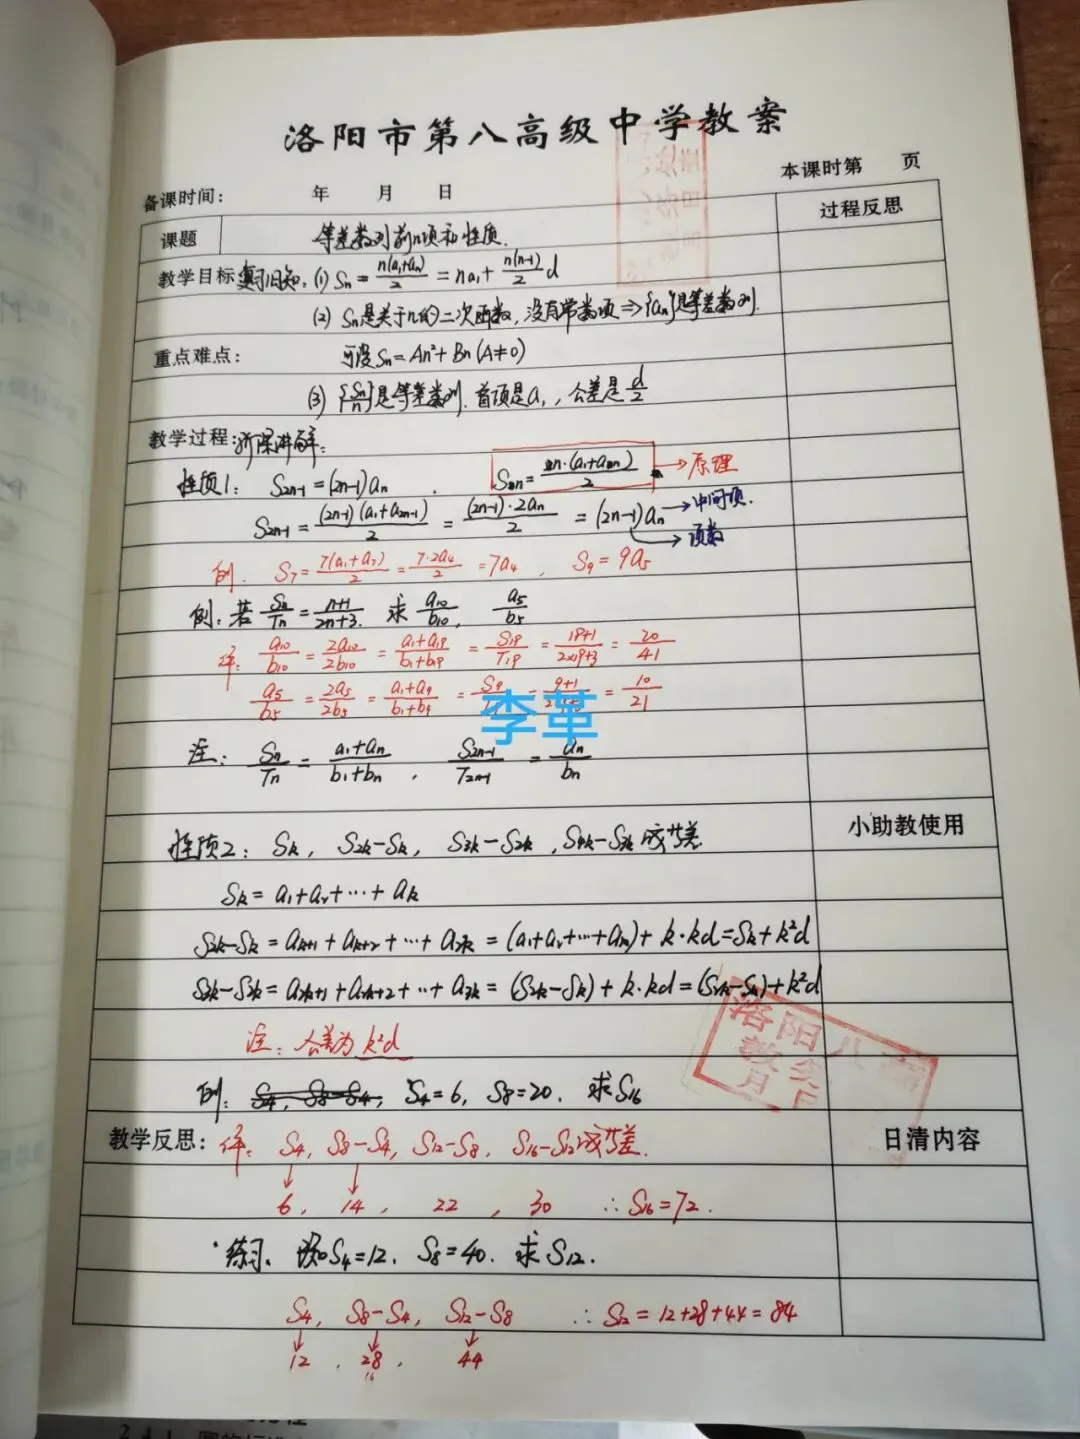 洛阳市第八高级中学教案
备课时间: 年 月 日 本课时第 页
课题 等差数列前n项和性质. 过程反思
教学目标 复习旧知: (1) Sn = n(a₁+an)/2 = na₁ + n(n-1)/2 d
(2) Sn是关于n的二次函数, 没有常数项 ⇒ {an}是等差数列.
重点难点: 可设Sn = An² + Bn (A≠0)
(3) {Sn/n}是等差数列. 首项是a₁, 公差是d/2
教学过程: 新课讲解:
性质1: S₂n-₁ = (2n-1)an . n·(a₁+an)/2 → 原理
S₂n-₁ = (2n-1)(a₁+a₂n-₁)/2 = (2n-1)·2an/2 = (2n-1)an → 中间项.
→ 项数
例. S₇ = 7(a₁+a₇)/2 = 7·2a₄/2 = 7a₄ , S₉ = 9a₅
例: 若 Sn/Tn = n+1/2n+3. 求 a₁₀/b₁₀, a₅/b₅
解: a₁₀/b₁₀ = 2a₁₀/2b₁₀ = a₁+a₁₉/b₁+b₁₉ = S₁₉/T₁₉ = 19+1/2×19+3 = 20/41
a₅/b₅ = 2a₅/2b₅ = a₁+a₉/b₁+b₉ = S₉ = 9+1 = 10/21
李革
注: Sn/Tn = a₁+an/b₁+bn , S₂n-₁/T₂n-₁ = an/bn
小助教使用
性质2: Sk, S₂k-Sk, S₃k-S₂k, S₄k-S₃k 成等差
Sk = a₁+a₂+···+ak
S₂k-Sk = ak+₁ + ak+₂ + ··· + a₂k = (a₁+a₂+···+ak) + k·kd = Sk + k²d
S₃k-S₂k = a₂k+₁ + a₂k+₂ + ··· + a₃k = (S₂k-Sk) + k·kd = (S₂k-Sk) + k²d
注: 公差为 k²d
例: S₄, S₈-S₄, S₄=6, S₈=20. 求S₁₆
教学反思: 解: S₄, S₈-S₄, S₁₂-S₈, S₁₆-S₁₂成等差. 日清内容
6, 14, 22, 30 ∴ S₁₆=72.
练习. 设 S₄=12. S₈=40. 求 S₁₂.
S₄, S₈-S₄, S₁₂-S₈ ∴ S₁₂ = 12+28+44 = 84
12 , 28 , 44
洛阳八高
教务
月 日